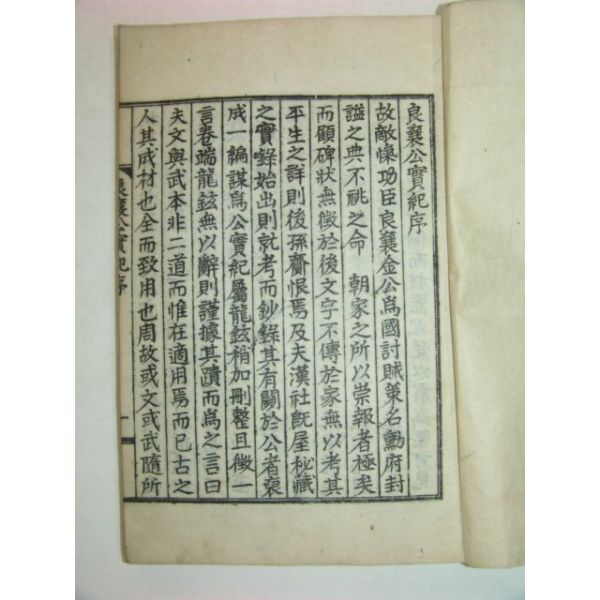 良襄公實紀序
故敵愾功臣良襄金公爲國討賊策名勳府封
諡之典不祧之命 朝家之所以崇報者極矣
而顧碑狀無徵於後文字不傳於家無以考其
平生之詳則後孫齎恨焉及夫漢社旣屋秘藏
之實錄始出則就考而鈔錄其有關於公者裒
成一編謀爲公實紀屬龍鉉稍加刪整且徵一
言卷端龍鉉無以辭則謹據其蹟而爲之言曰
夫文與武本非二道而惟在適用焉而已古之
人其成材也全而致用也周故或文或武隨所
良襄公實紀序
一